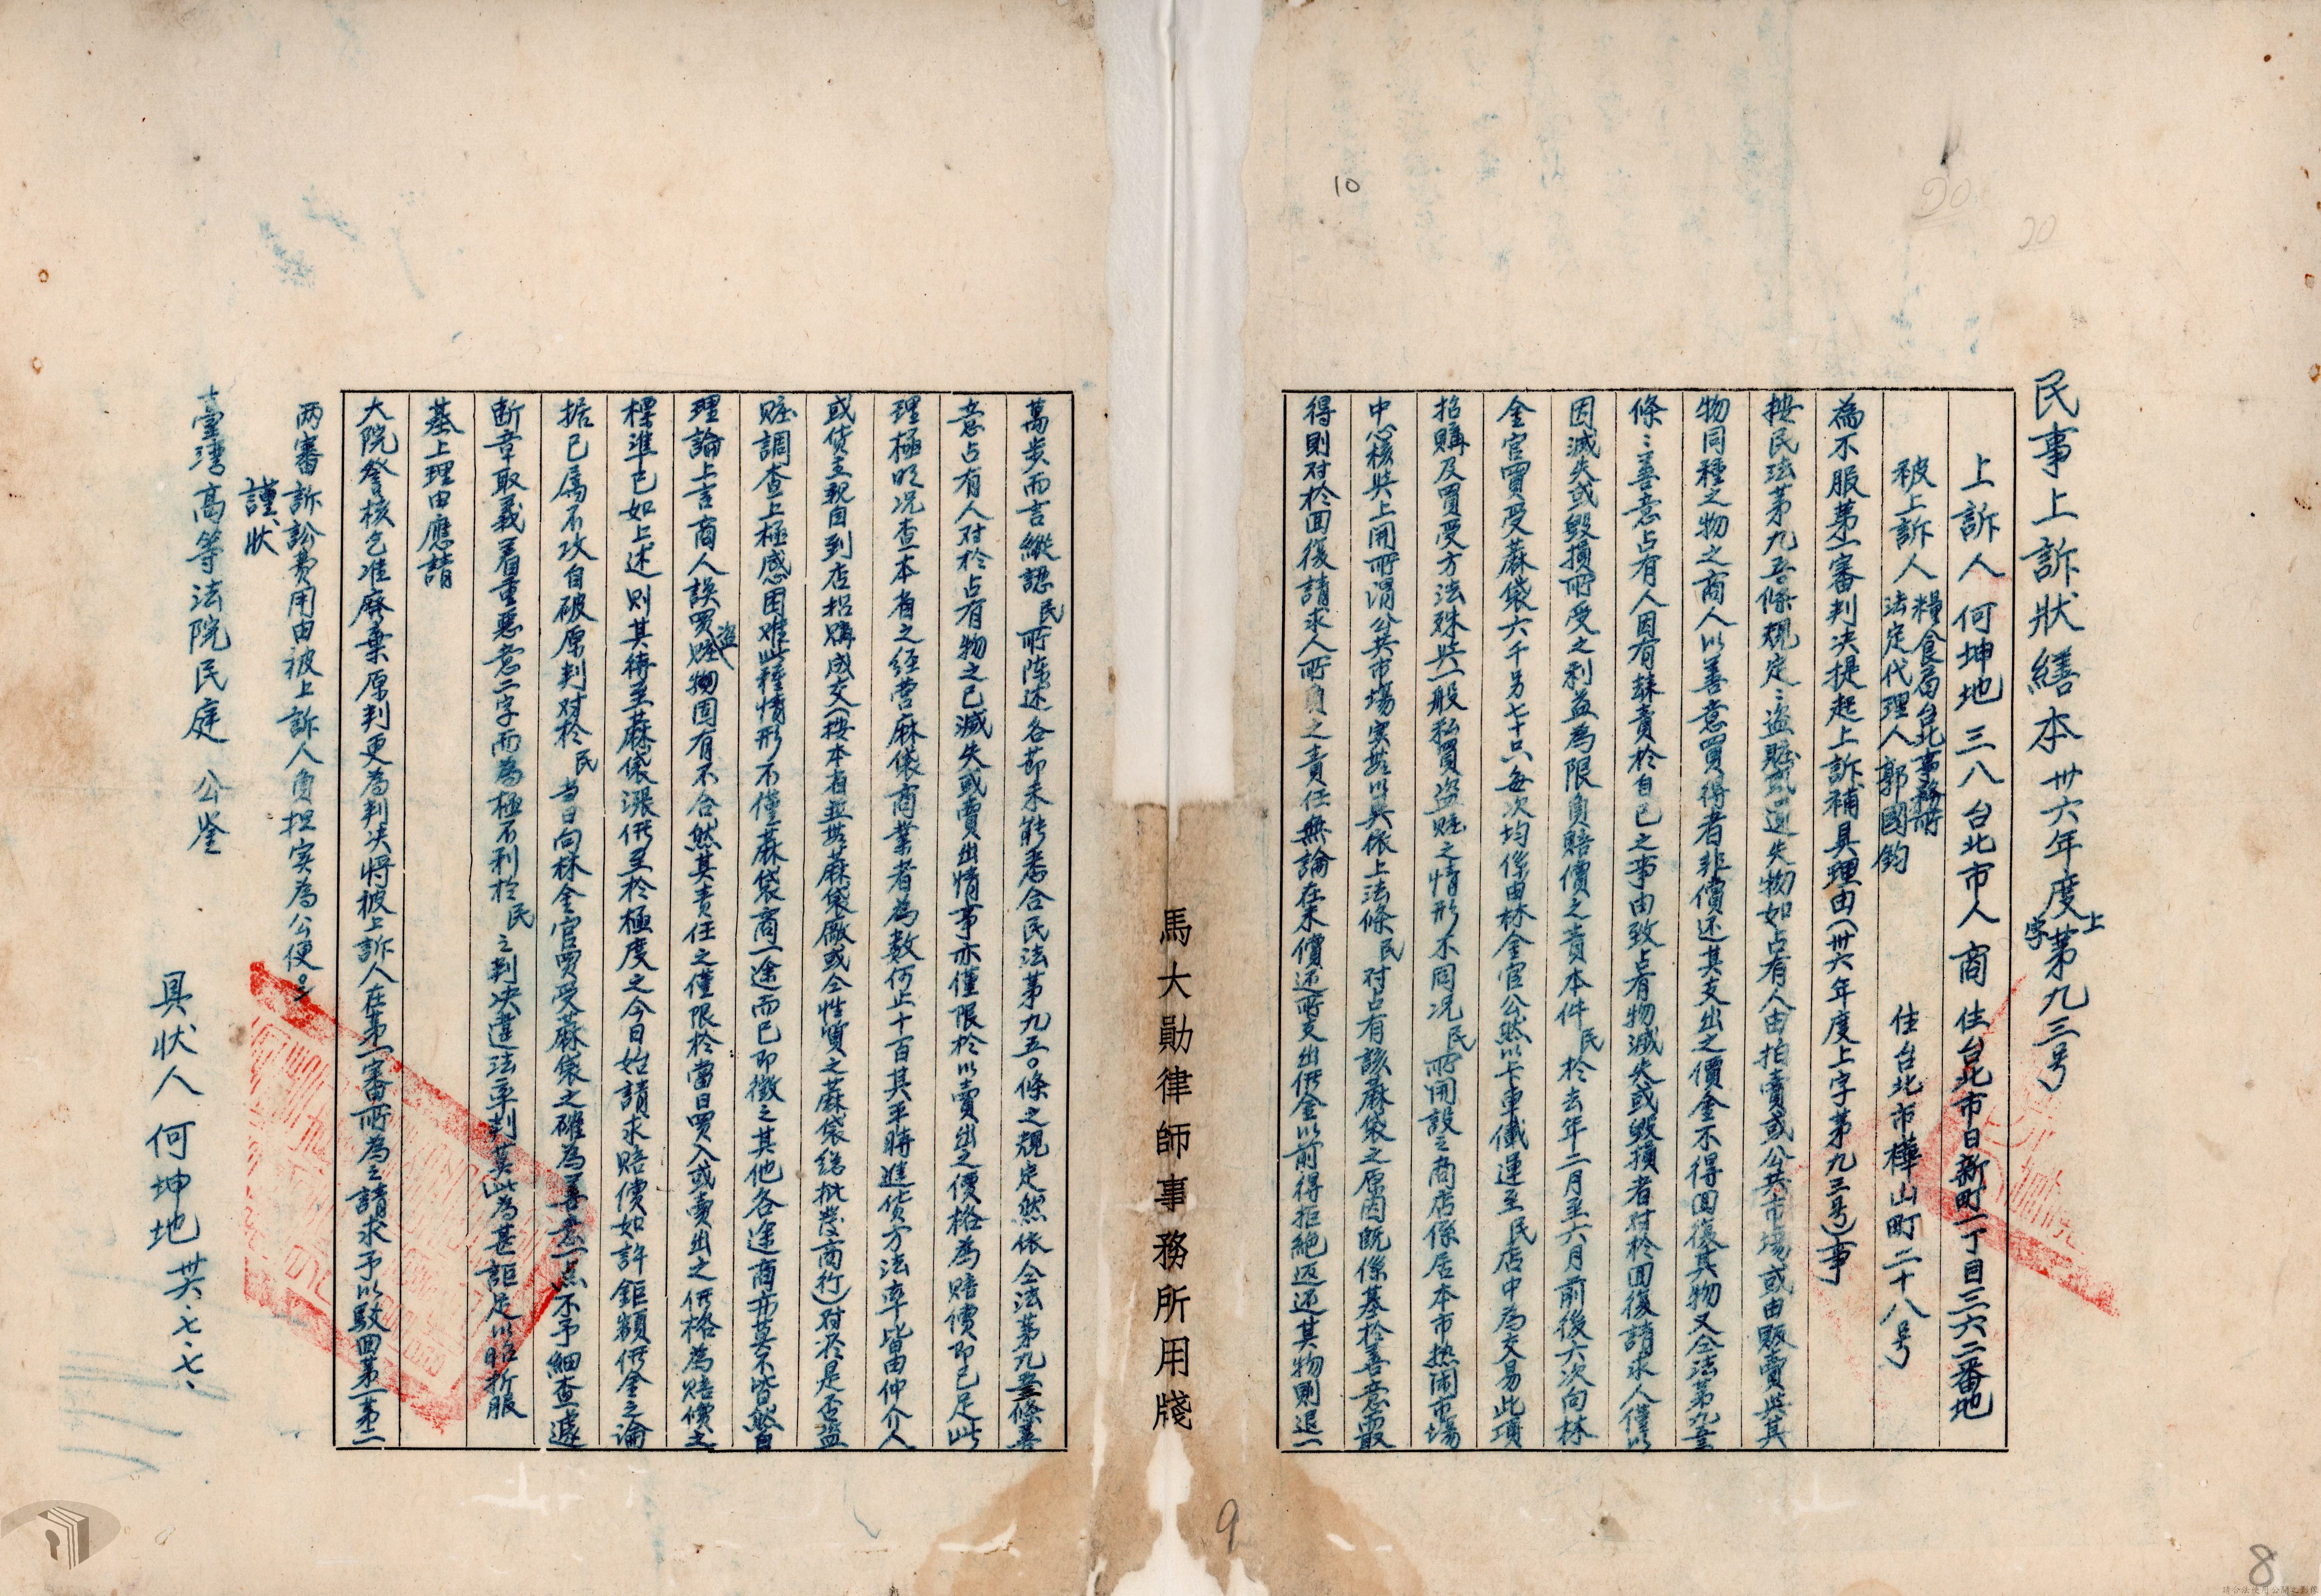 民事上訴狀繕本 卅六年度上字第九三号
上訴人 何坤地 三八 台北市人 商 住台北市日新町一丁目三六二番地
被上訴人 糧食局台北事務所
法定代理人 郭國鈞 住台北市樺山町二十八号
為不服第一審判决提起上訴補具理由(卅六年度上字第九三号)事
按民法第九五〇條規定:盗贓或遺失物如占有人由拍賣或公共市場或由販賣與其
物同種之物之商人以善意買得者非償还其支出之價金不得回復其物又仝法第九五三
條:善意占有人因有歸責於自己之事由致占有物滅失或毀損者对於回復請求人僅以
因滅失或毀損所受之利益為限負賠償之責本件民於去年二月至六月前後六次向林
金官買受蔴袋六千另七十只每次均係由林金官公然以卡車儎運至民店中為交易此項
招購及買受方法殊與一般私買盗贓之情形不同况民所開設之商店係居本市热闹市場
中心核與上開所謂公共市場实無以異依上法條民对占有該蔴袋之原因既係基於善意而取
得則对於回復請求人所負之責任無論在未償还所支出价金以前得拒絕返还其物則退一
馬大勛律師事務所用牋
萬步而言縱認民所陈述各節未能悉合民法第九五〇條之規定然依仝法第九五三條善
意占有人对於占有物之已滅失或賣出情事亦僅限於以賣出之價格為賠償即已足此
理極明况查本省之经营麻袋商業者為数何止十百其平時進货方法率皆由仲介人
或货主親自到店招購成交(按本省並無蔴袋廠或仝性質之蔴袋總批發商行)对於是否盗
贓調查上極感困难此種情形不僅蔴袋商一途而已即徵之其他各途商亦莫不皆然自
理論上言商人誤買盗贓物固有不合然其责任之僅限於當日買入或賣出之价格為賠償之
標準已如上述則其待至蔴袋漲价至於極度之今日始請求賠償如許鉅額价金之論
据已属不攻自破原判对於民当日向林金官買受蔴袋之確為善意一点不予細查遽
断章取義着重惡意二字而為極不利於民之判决違法率判莫此為甚詎足以昭折服
基上理由應請
大院詧核乞准廢棄原判更為判决將被上訴人在第一審所為之請求予以駁回第一第二
两審訴訟費用由被上訴人負担实為公便。
謹狀
臺灣高等法院民庭 公鉴
具狀人 何坤地 卅六、七、七、
10
20
20
9
8